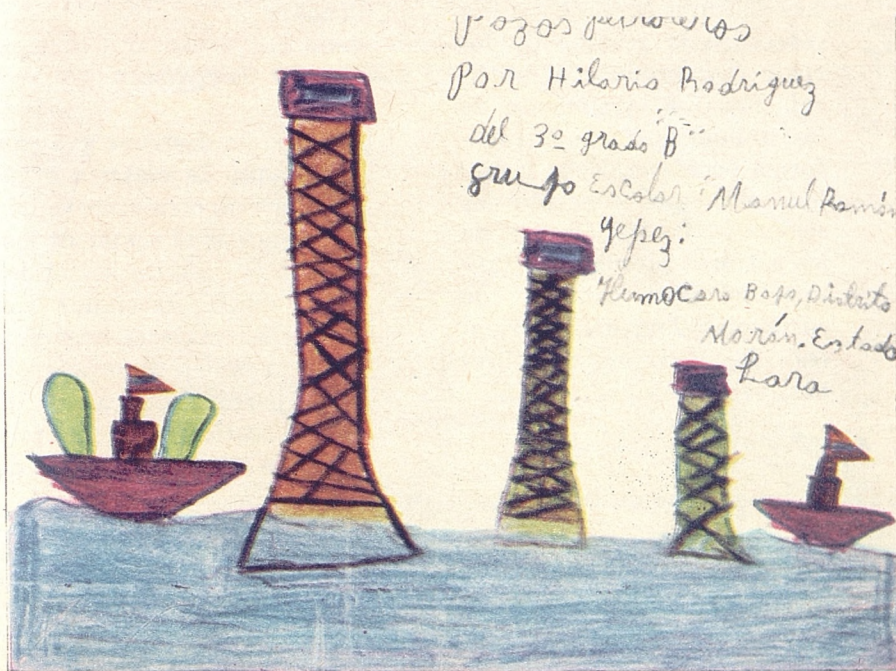 Pozos petroleros
Por Hilario Rodríguez
del 3º grado "B"
grupo Escolar "Manuel Ramón
Yepez:
Humocaro Bajo, Distrito
Morán. Estado
Lara